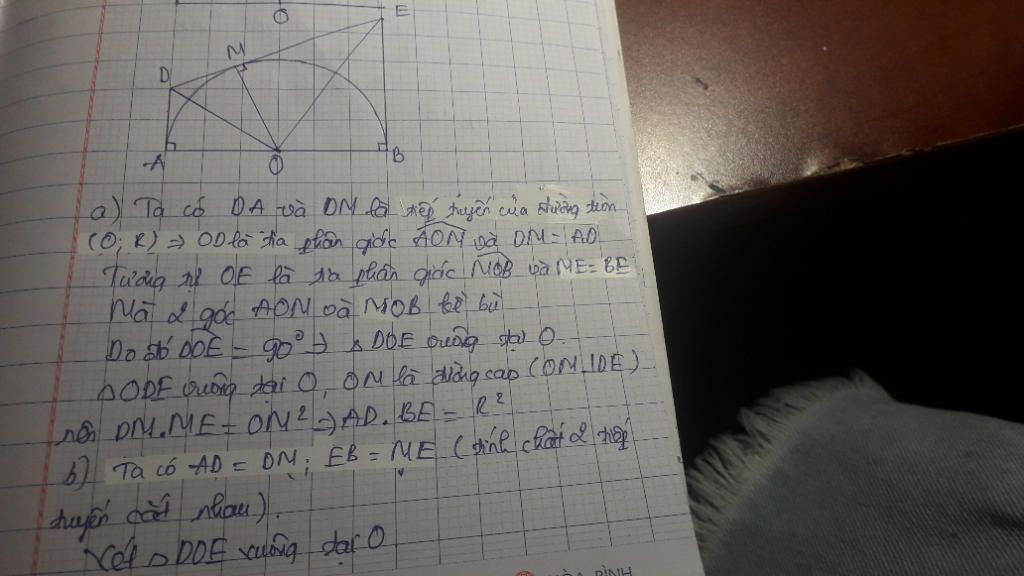 O
E
M
D
A
O
B
a) Ta có DA và DM là tiếp tuyến của đường tròn
(O; R) ⇒ OD là tia phân giác AOM và DM = AD
Tương tự OE là tia phân giác MOB và ME = BE
Mà 2 góc AOM và MOB kề bù
Do đó DOE = 90° ⇒ △ DOE vuông tại O.
△ ODE vuông tại O, OM là đường cao (OM ⊥ DE)
nên DM.ME = OM² ⇒ AD. BE = R²
b) Ta có AD = DM; EB = ME (tính chất 2 tiếp
tuyến cắt nhau).
Xét △ DOE vuông tại O
HÒA BÌNH